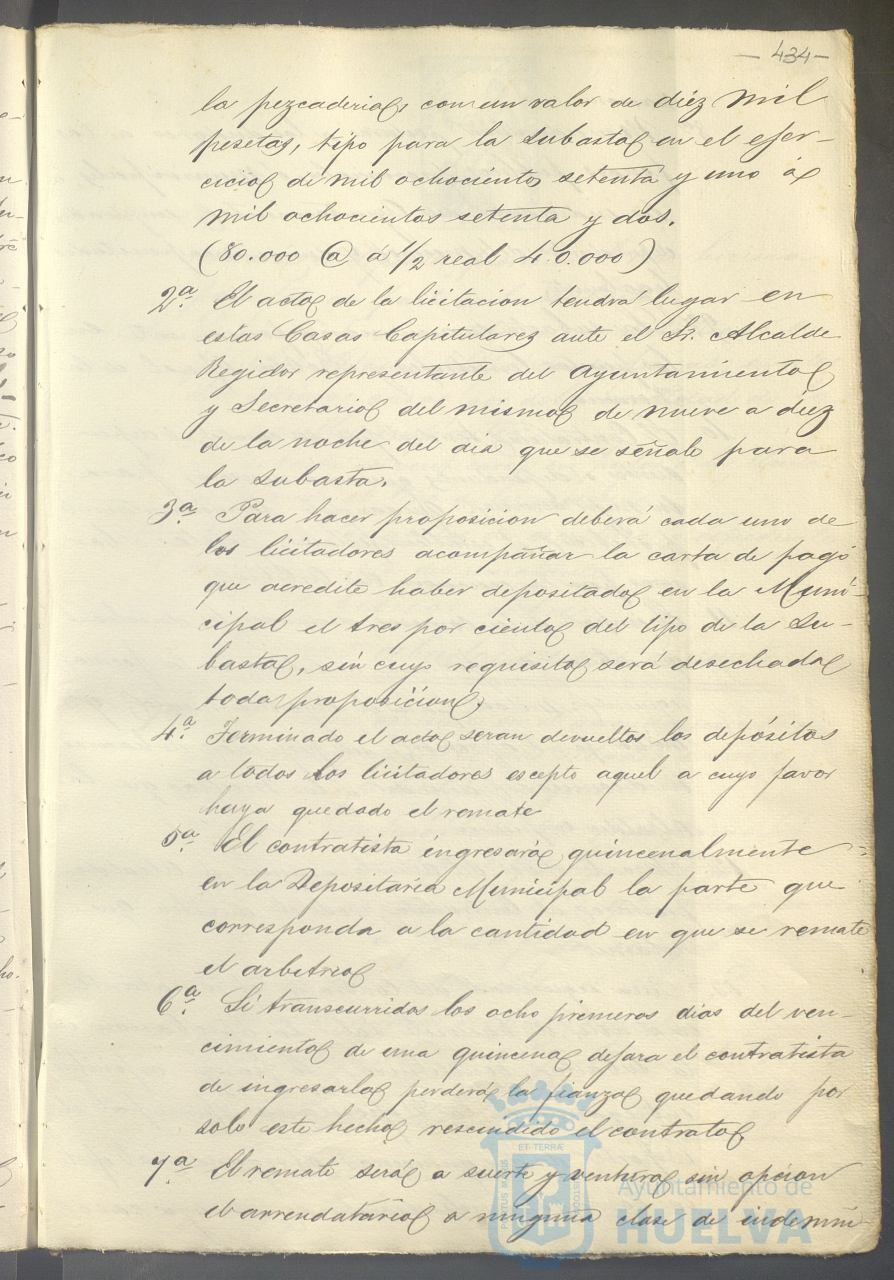 — 434 —
la pezcaderia, con un valor de diéz mil
pesetas, tipo para la subasta en el ejer-
cicio de mil ochocientos setenta y uno á
mil ochocientos setenta y dos.
(80.000 @ á 1/2 real 40.000)
2ª. El acto de la licitacion tendrá lugar en
estas Casas Capitulares ante el Sr. Alcalde
Regidor representante del Ayuntamiento
y Secretario del mismo de nueve a diéz
de la noche del dia que se señale para
la subasta.
3ª. Para hacer proposicion deberá cada uno de
los licitadores acompañar la carta de pago
que acredite haber depositado en la Muni-
cipal el tres por ciento del tipo de la su-
basta, sin cuyo requisito será desechada
toda proposicion.
4ª. Terminado el acto seran devueltos los depósitos
a todos los licitadores escepto aquel a cuyo favor
haya quedado el remate
5ª. El contratista ingresará quincenalmente
en la Depositaría Municipal la parte que
corresponda a la cantidad en que se remate
el arbitrio
6ª. Si transcurridos los ocho primeros dias del ven-
cimiento de una quincena dejara el contratista
de ingresarla perderá la fianza quedando por
solo este hecho rescindido el contrato
7ª. El remate será a suerte y ventura sin opcion
el arrendatario a ninguna clase de indemni-
Ayuntamiento de
HUELVA